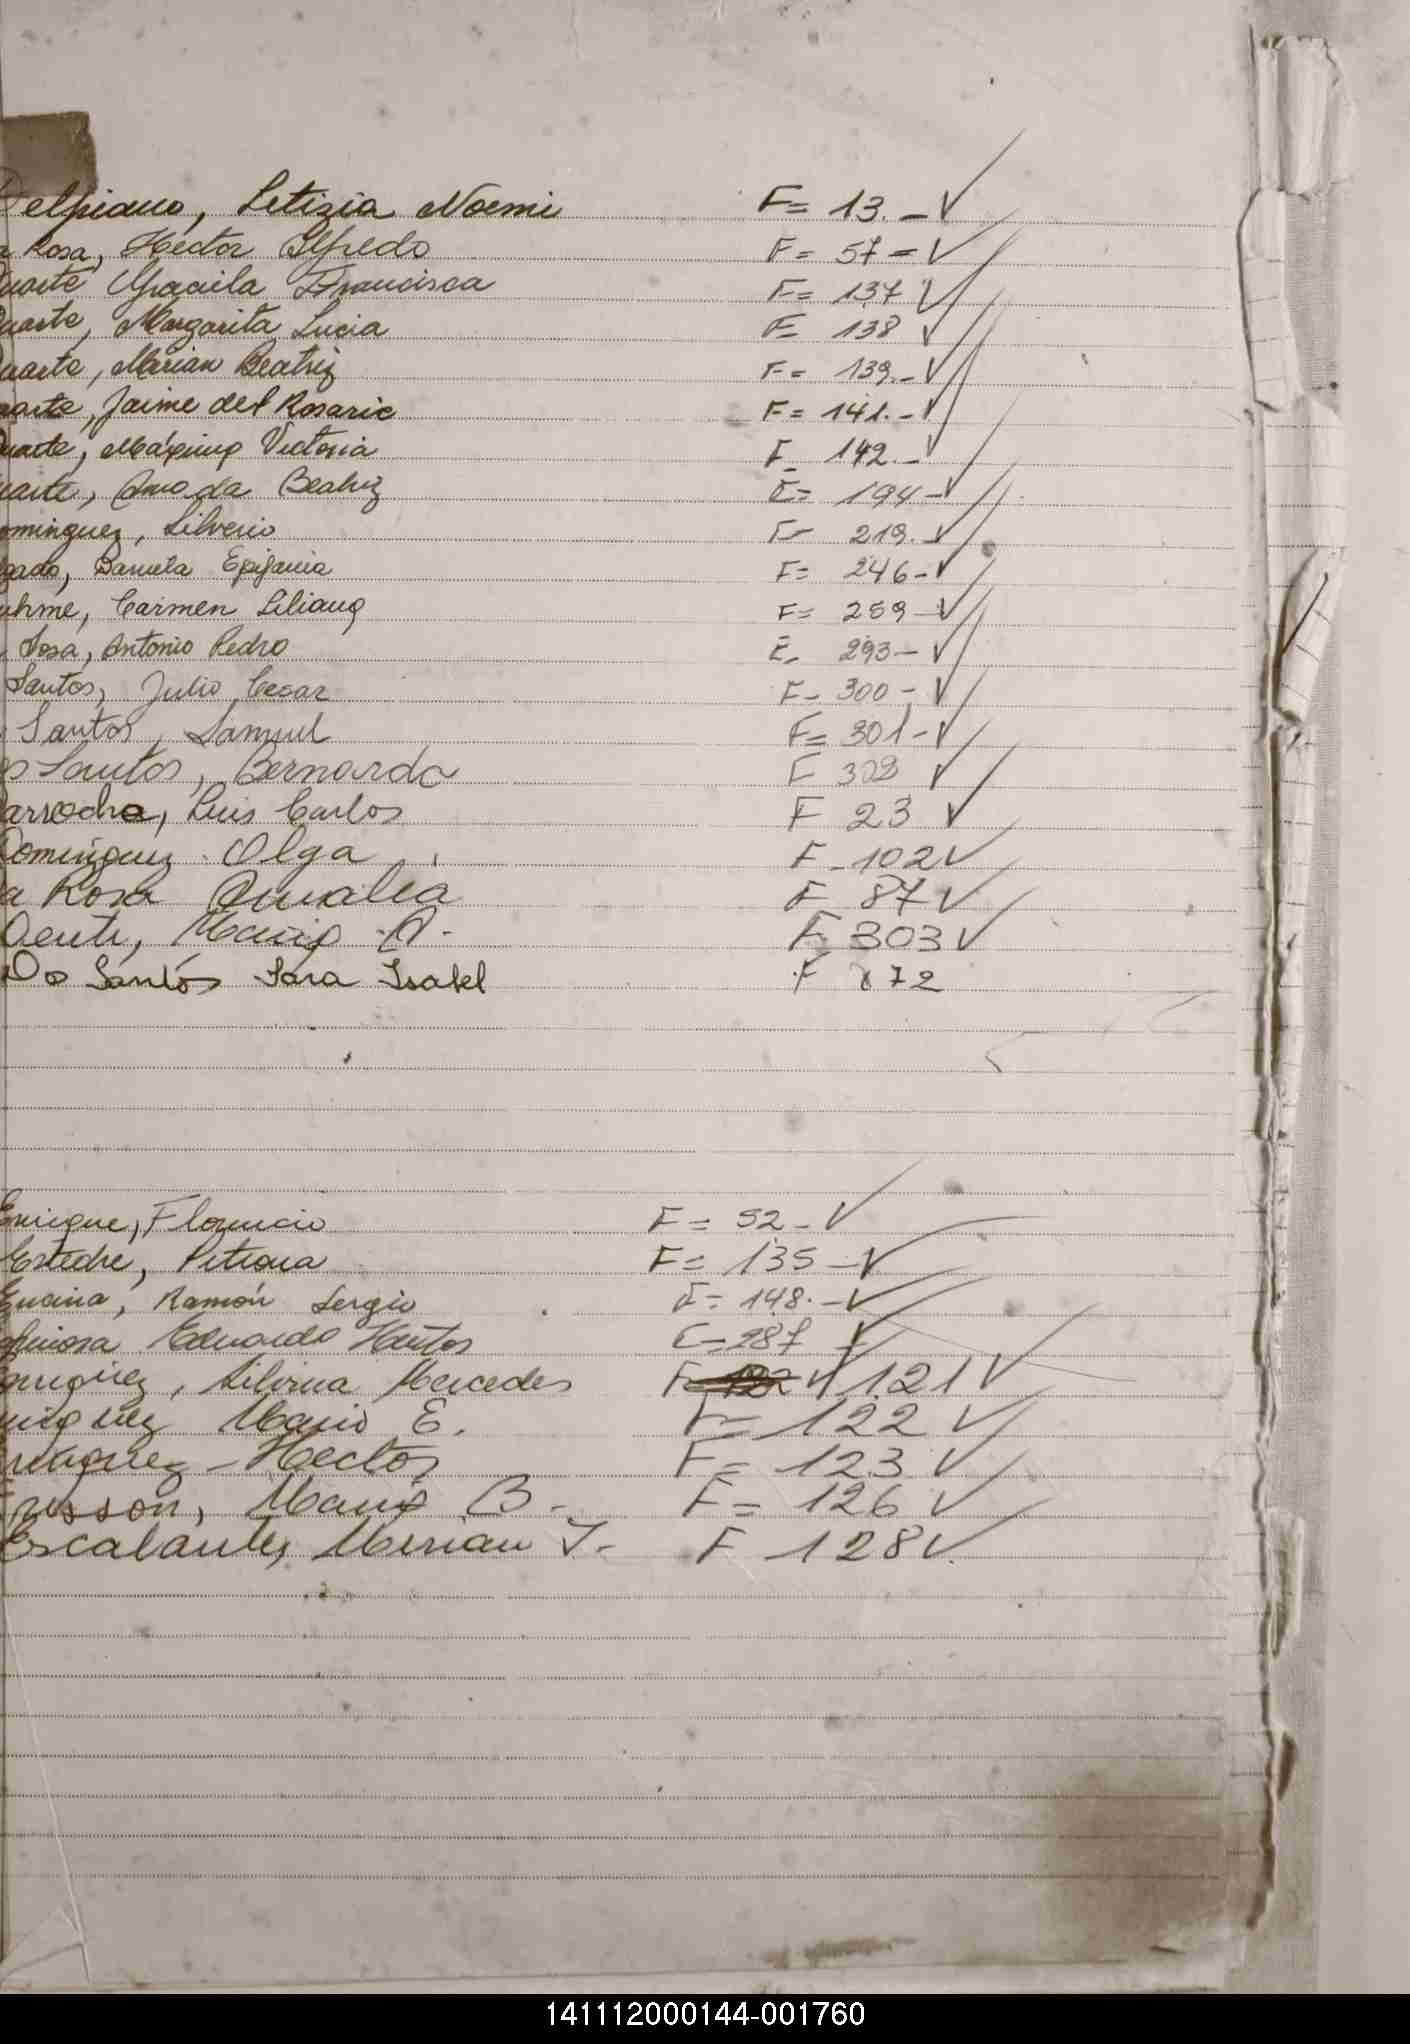 Delpiano, Letizia Noemi F= 13.-
Rosa, Hector Alfredo F= 57=
uarte Graciela Francisca F= 137
uarte, Margarita Lucia F= 138
uarte, Mirian Beatriz F= 139.-
uarte, Jaime del Rosario F= 141.-
uarte, Máximo Victoria F- 142.-
uarte, Amada Beatriz F= 194-
ominguez, Silverio F- 219.-
gado, Daniela Epifania F= 246-
uhme, Carmen Liliana F= 259-
Sosa, Antonio Pedro F- 293-
Santos, Julio Cesar F- 300-
Santos, Samuel F= 301-
os Santos, Bernarda F 302
arrocha, Luis Carlos F 23
Dominguez. Olga F-102
a Rosa Amalia F 87
Dente, Maria A. F 303
Do Santos Sara Isabel F 172
Enrique, Florencio F= 52-
Esteche, Petrona F= 135-
Encina, Ramón Sergio F= 148.-
pinosa Eduardo Hector F=287
riquez, Silvina Mercedes F 121
riquez Mario E. F= 122
riquez - Hector F= 123
risson, Mario B. F= 126
Escalante, Mirian I. F 128
141112000144-001760